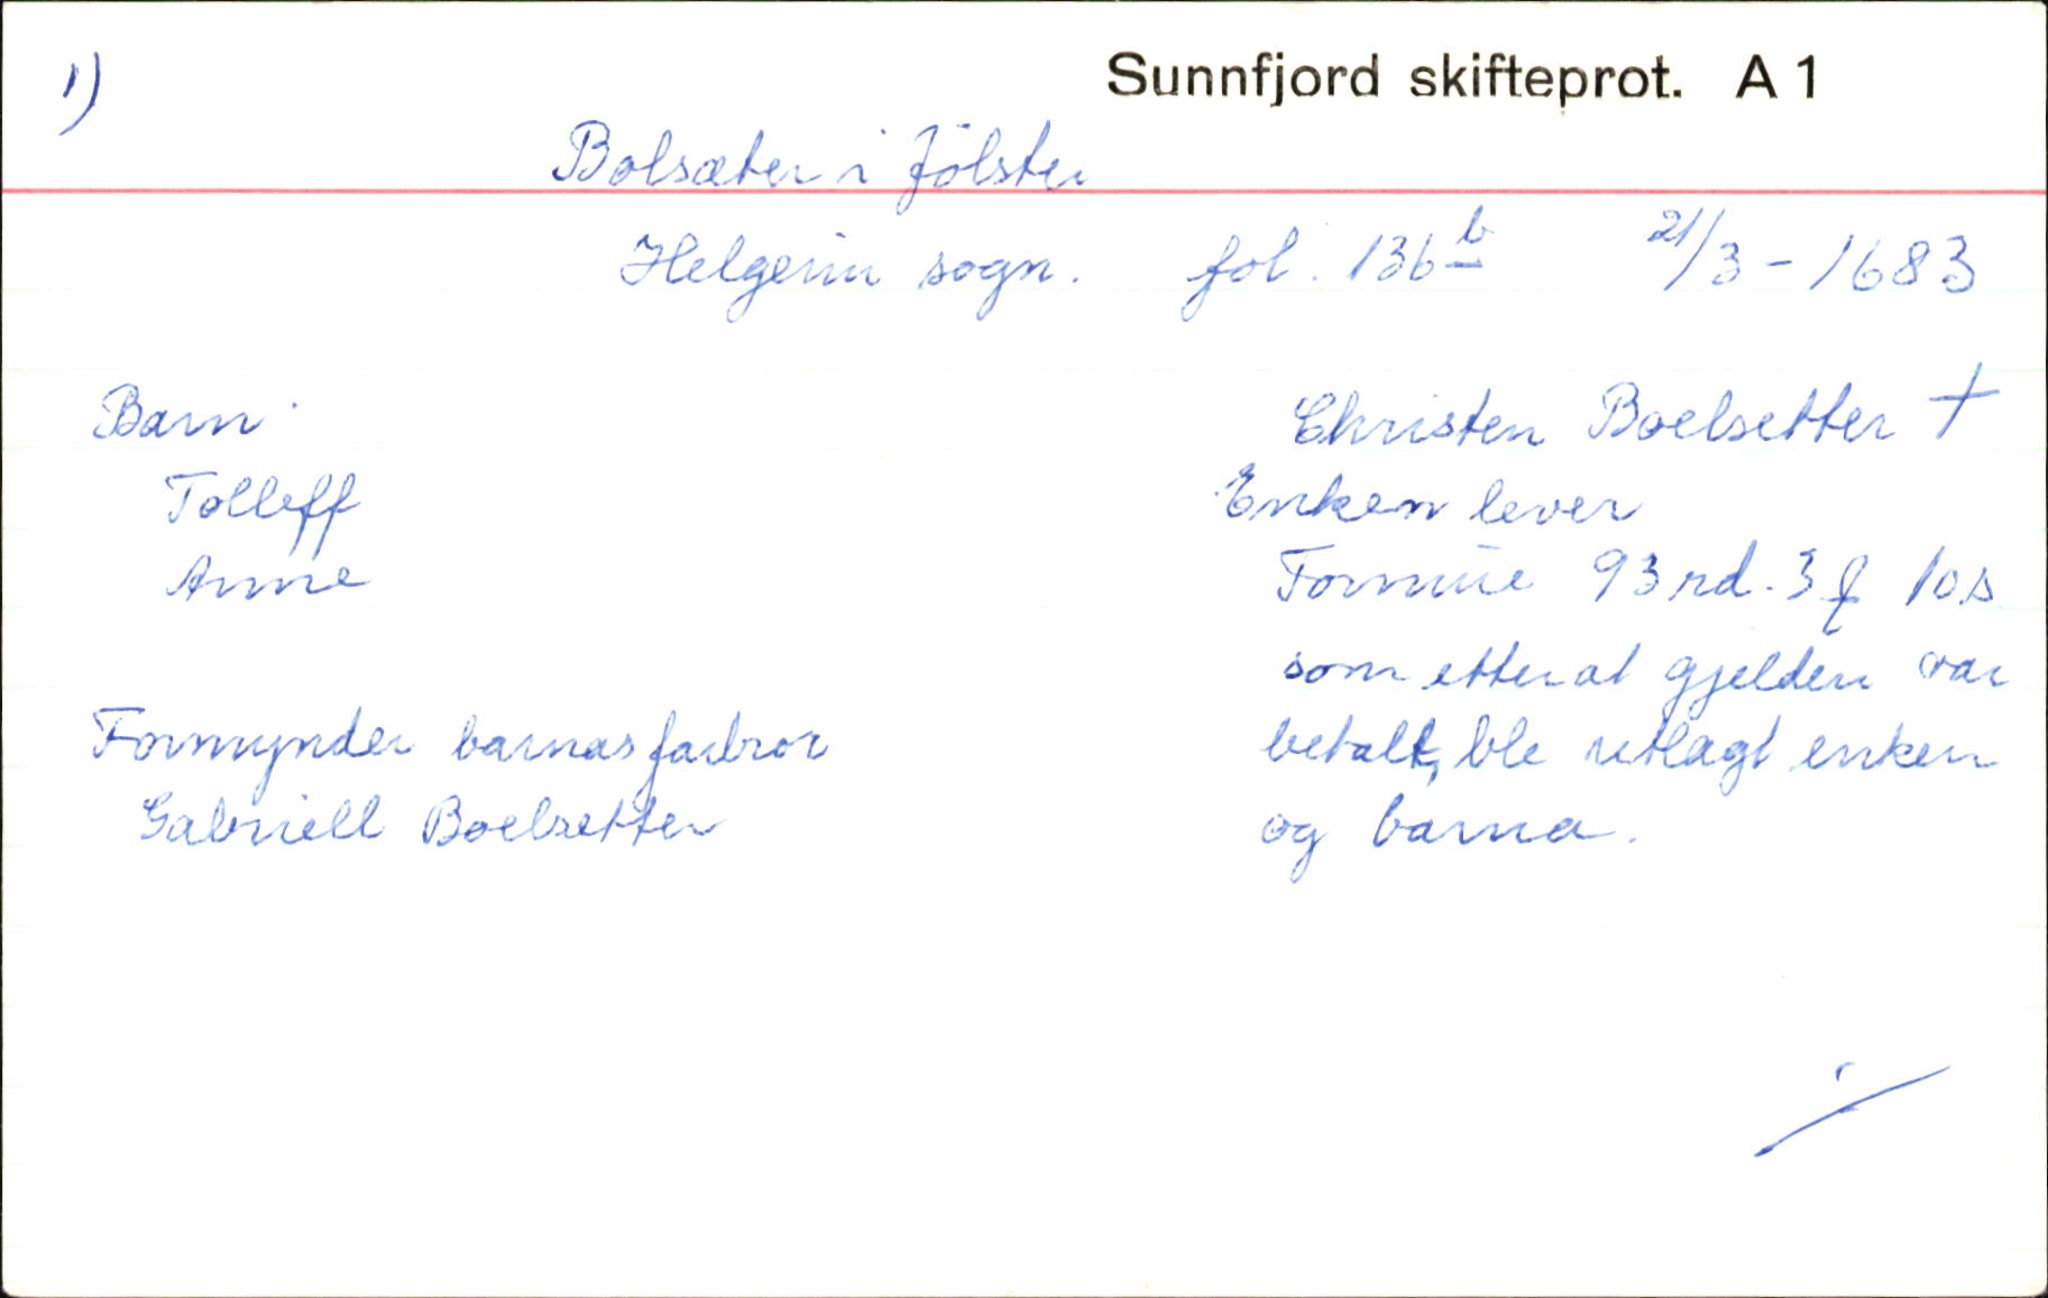 1)
Sunnfjord skifteprot. A 1
Bolsæter i Jölster
Helgeim sogn. fol. 136 b 21/3 - 1683
Barn.
Tolleff
Anne
Formynder barnas farbror
Gabriell Boelsetter
Christen Boelsetter +
Enken lever
Formue 93 rd. 3 f 10 s
som etter at gjelden var
betalt, ble utlagt enken
og barna.